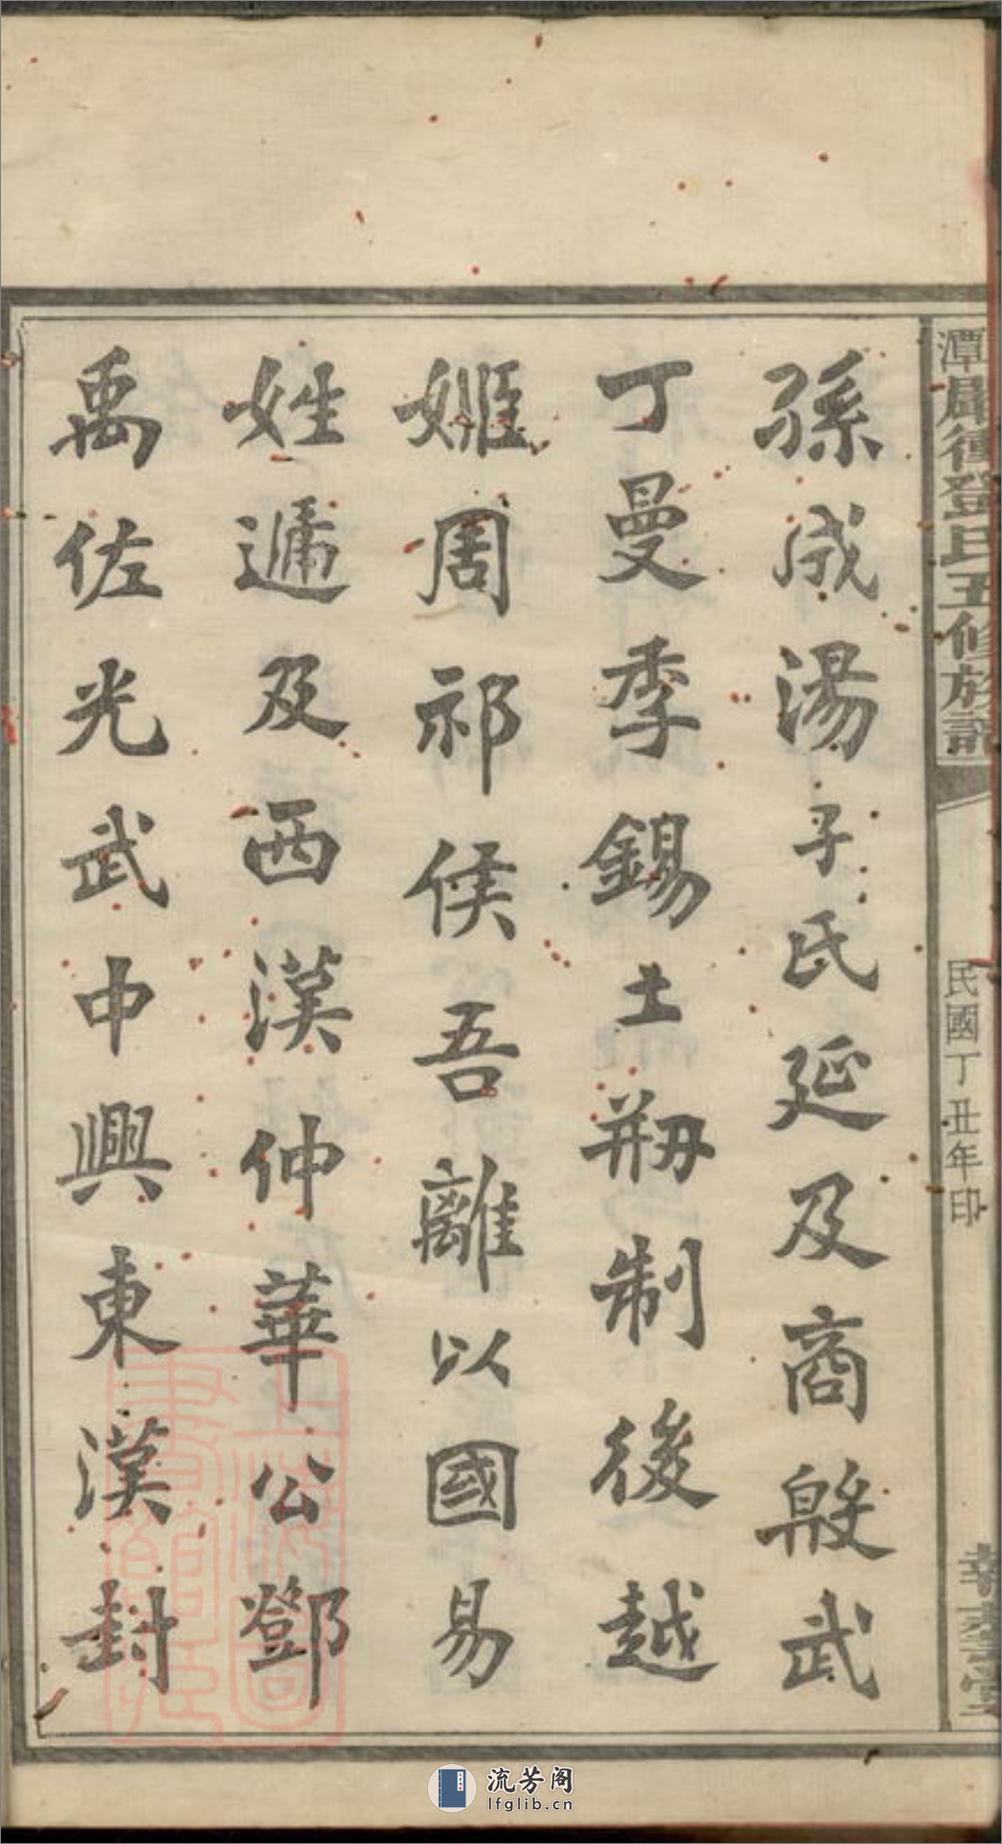 孫成湯子氏延及商殷武
丁曼季錫土刱制後越
姬周祁侯吾離以國易
姓遞及西漢仲華公鄧
禹佐光武中興東漢封
鄧氏五修族譜
民國丁丑年印
流芳阁
lfglib.cn